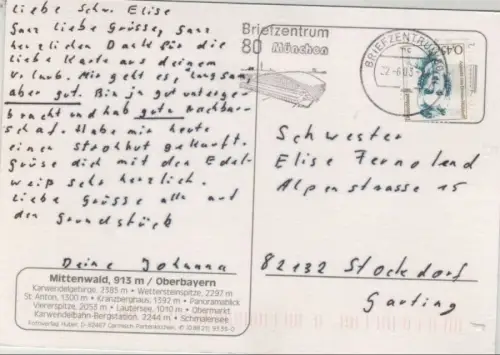 Liebe Schw. Elise
Ganz liebe Grüsse, ganz
herzlichen Dank für die
liebe Karte aus deinem
Urlaub. Mir geht es, langsam
aber gut. Bin ja gut unterge-
bracht und hab gute Nachbar-
schaf. Habe mir heute
einen Strohhut gekauft.
Grüse dich mit den Edel-
weiß sehr herzlich.
Liebe Grüsse alle auf
den Grundstück
Deine Johanna
Mittenwald, 913 m / Oberbayern
Karwendelgebirge, 2385 m • Wettersteinspitze, 2297 m
St. Anton, 1300 m • Kranzberghaus, 1392 m • Panoramablick
Viererspitze, 2053 m • Lautersee, 1010 m • Obermarkt
Karwendelbahn-Bergstation, 2244 m • Schmalensee
Huber, D-82467 Garmisch-Partenkirchen
Briefzentrum
80 München
BRIEFZENTRUM
Schwester
Elise
Alpenstrasse 15
82132 Stockdorf
Gauting